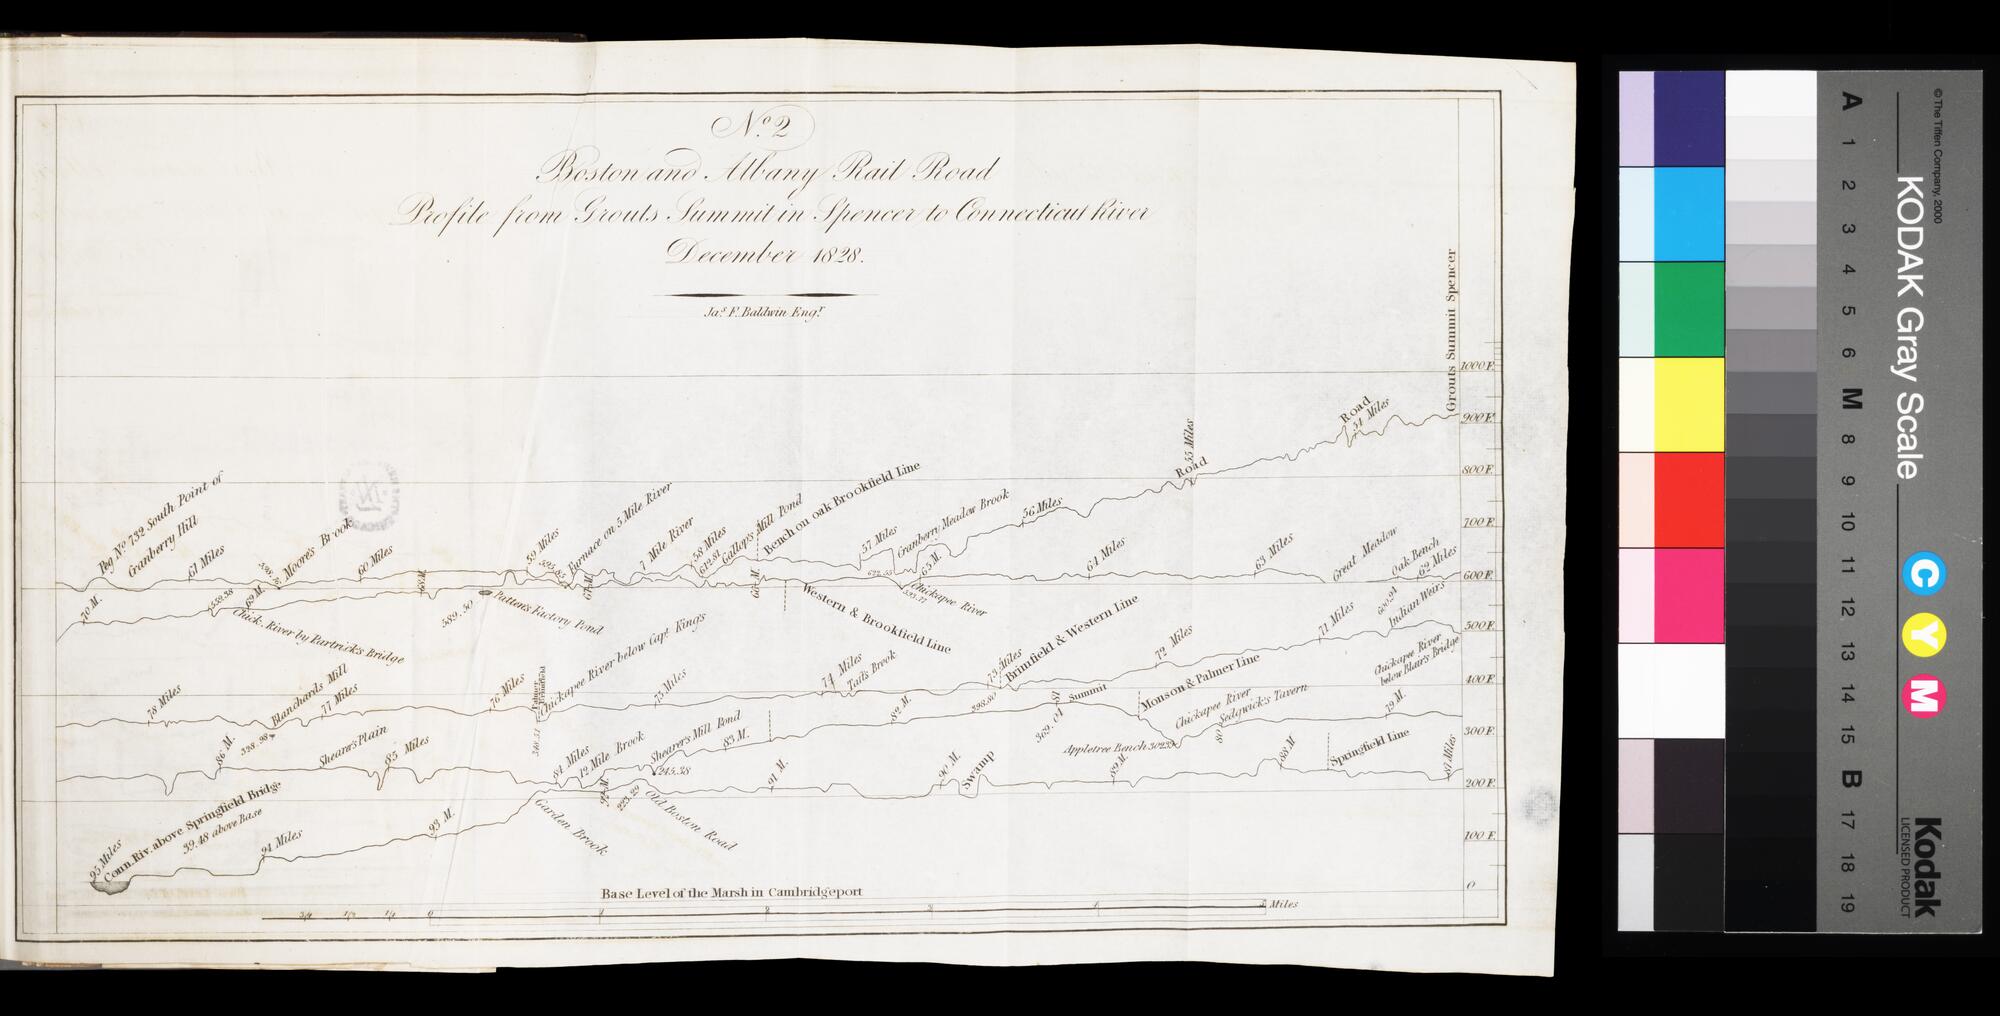 No. 2
Boston and Albany Rail Road
Profile from Grouts Summit in Spencer to Connecticut River
December 1828.
Jas. F. Baldwin Engr.
Grouts Summit Spencer
1000 F.
900 F.
800 F.
700 F.
600 F.
500 F.
400 F.
300 F.
200 F.
100 F.
0
Road
54 Miles
55 Miles
Road
56 Miles
Cranberry Meadow Brook
57 Miles
Bench on oak Brookfield Line
Mill Pond
Gallops
612.81
58 Miles
7 Mile River
Furnace on 5 Mile River
59 Miles
595.85
60 Miles
Moores Brook
61 Miles
Peg No. 732 South Point of
Cranberry Hill
62 Miles
Oak Bench
Great Meadow
63 Miles
64 Miles
65 M.
622.55
Chickapee River
593.77
66 M.
Western & Brookfield Line
67 M.
Patten's Factory Pond
589.50
68 M.
69 M.
559.38
Chick. River by Partrick's Bridge
70 M.
600.91
Indian Weirs
71 Miles
72 Miles
Brimfield & Western Line
73 Miles
74 Miles
Tufts Brook
75 Miles
Chickapee River below Capt King's
Palmer
Brimfield
76 Miles
77 Miles
Blanchards Mill
328.98
78 Miles
Chickapee River
below Blair's Bridge
79 M.
Sedgwick's Tavern
Chickapee River
80 M.
Appletree Bench 302.39
Monson & Palmer Line
Summit
81
369.04
398.80
82 M.
83 M.
Shearer's Mill Pond
245.38
12 Mile Brook
84 Miles
85 Miles
Shearer's Plain
86 M.
87 Miles
Springfield Line
88 M
89 M.
Swamp
90 M.
91 M.
Old Boston Road
223.29
92 M.
Garden Brook
93 M.
94 Miles
Conn. Riv. above Springfield Bridge
39.48 above Base
95 Miles
Base Level of the Marsh in Cambridgeport
3/4 1/2 1/4 0 1 2 3 4 5 Miles
© The Tiffen Company, 2000
KODAK Gray Scale
Kodak
LICENSED PRODUCT
C Y M
A 1 2 3 4 5 6 M 8 9 10 11 12 13 14 15 B 17 18 19